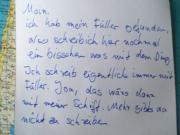 Moin.
ich hab mein Füller gefunden,
also schreib ich hier nochmal
ein bisschen was mit dem Ding.
Ich schreib eigentlich immer mit
Füller. Jom, das wars dann
mit meiner Schrift. Mehr gibts da
nicht zu schreiben